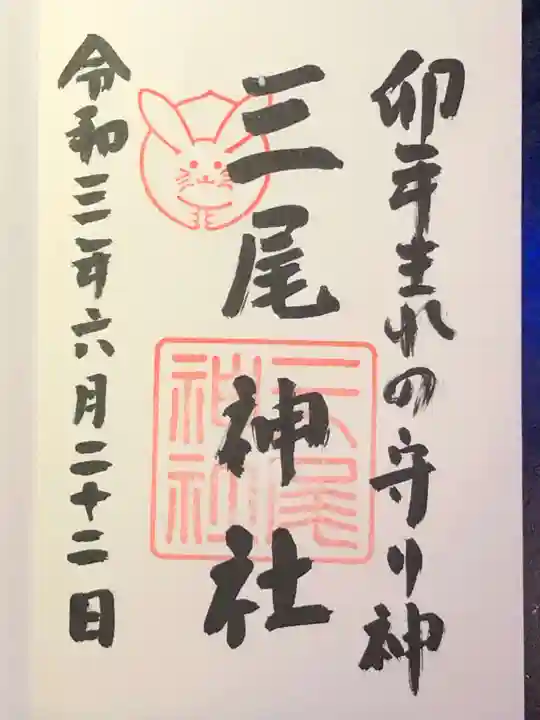 卯年生れの守り神
三尾神社
三尾神社
令和三年六月二十二日